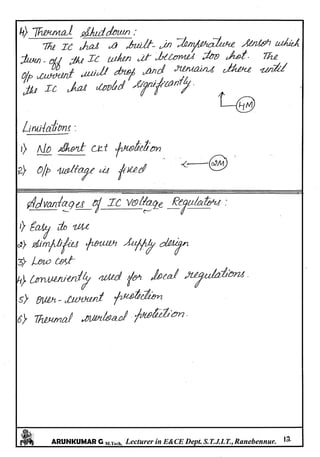 4) Thermal Shutdown :
The IC has a built-in temperature sensor which
turn-off the IC when it becomes too hot. The
o/p current will drop and remains there until
the IC has cooled significantly.
4M
Limitations :
1) No short ckt protection
2) O/p voltage is fixed
2M
Advantages of IC Voltage Regulators :
1) Easy to use
2) Simplifies power supply design
3) Low cost
4) Conveniently used for local regulations.
5) Over-current protection
6) Thermal overload protection.
ARUNKUMAR G M.Tech, Lecturer in E&CE Dept. S.T.J.I.T., Ranebennur. 13